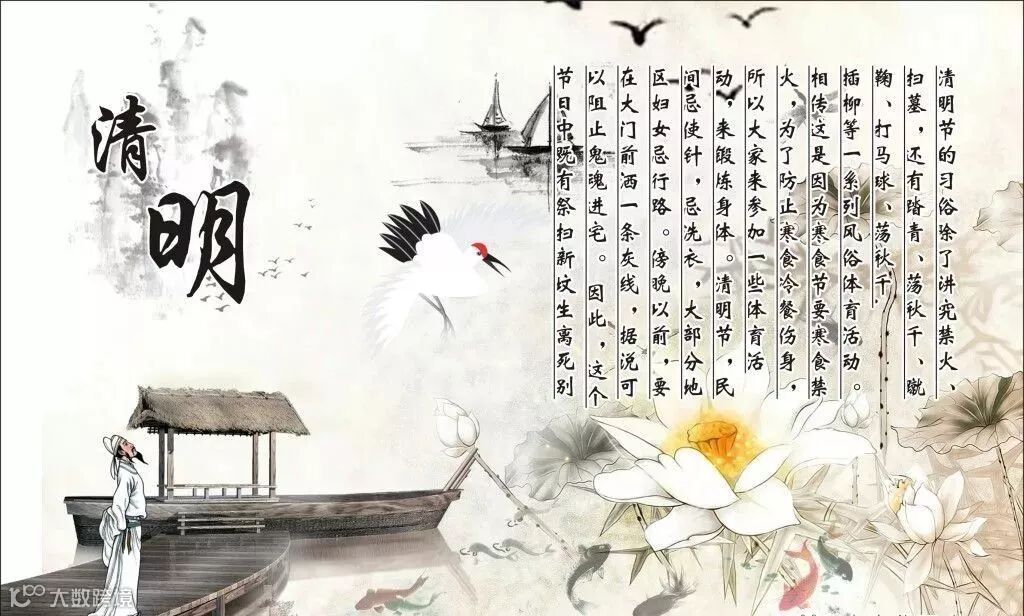 清明
清明节的习俗除了讲究禁火、
扫墓，还有踏青、荡秋千、蹴
鞠、打马球、荡秋千，
插柳等一系列风俗体育活动。
相传这是因为寒食节要寒食禁
火，为了防止寒食冷餐伤身，
所以大家来参加一些体育活
动，来锻炼身体。清明节，民
间忌使针，忌洗衣，大部分地
区妇女忌行路。傍晚以前，要
在大门前洒一条灰线，据说可
以阻止鬼魂进宅。因此，这个
节日中既有祭扫新坟生离死别
大数跨境